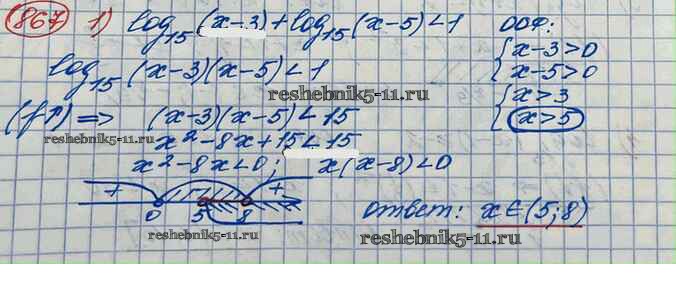 867 1) log₁₅(x-3)+log₁₅(x-5)<1 ООФ:
{x-3>0
log₁₅(x-3)(x-5)<1 {x-5>0
reshebnik5-11.ru
{x>3
(f↑) => (x-3)(x-5)<15 {x>5
x²-8x+15<15
x²-8x<0; x(x-8)<0
+ +
0 5 8
reshebnik5-11.ru
ответ: x∈(5;8)
reshebnik5-11.ru